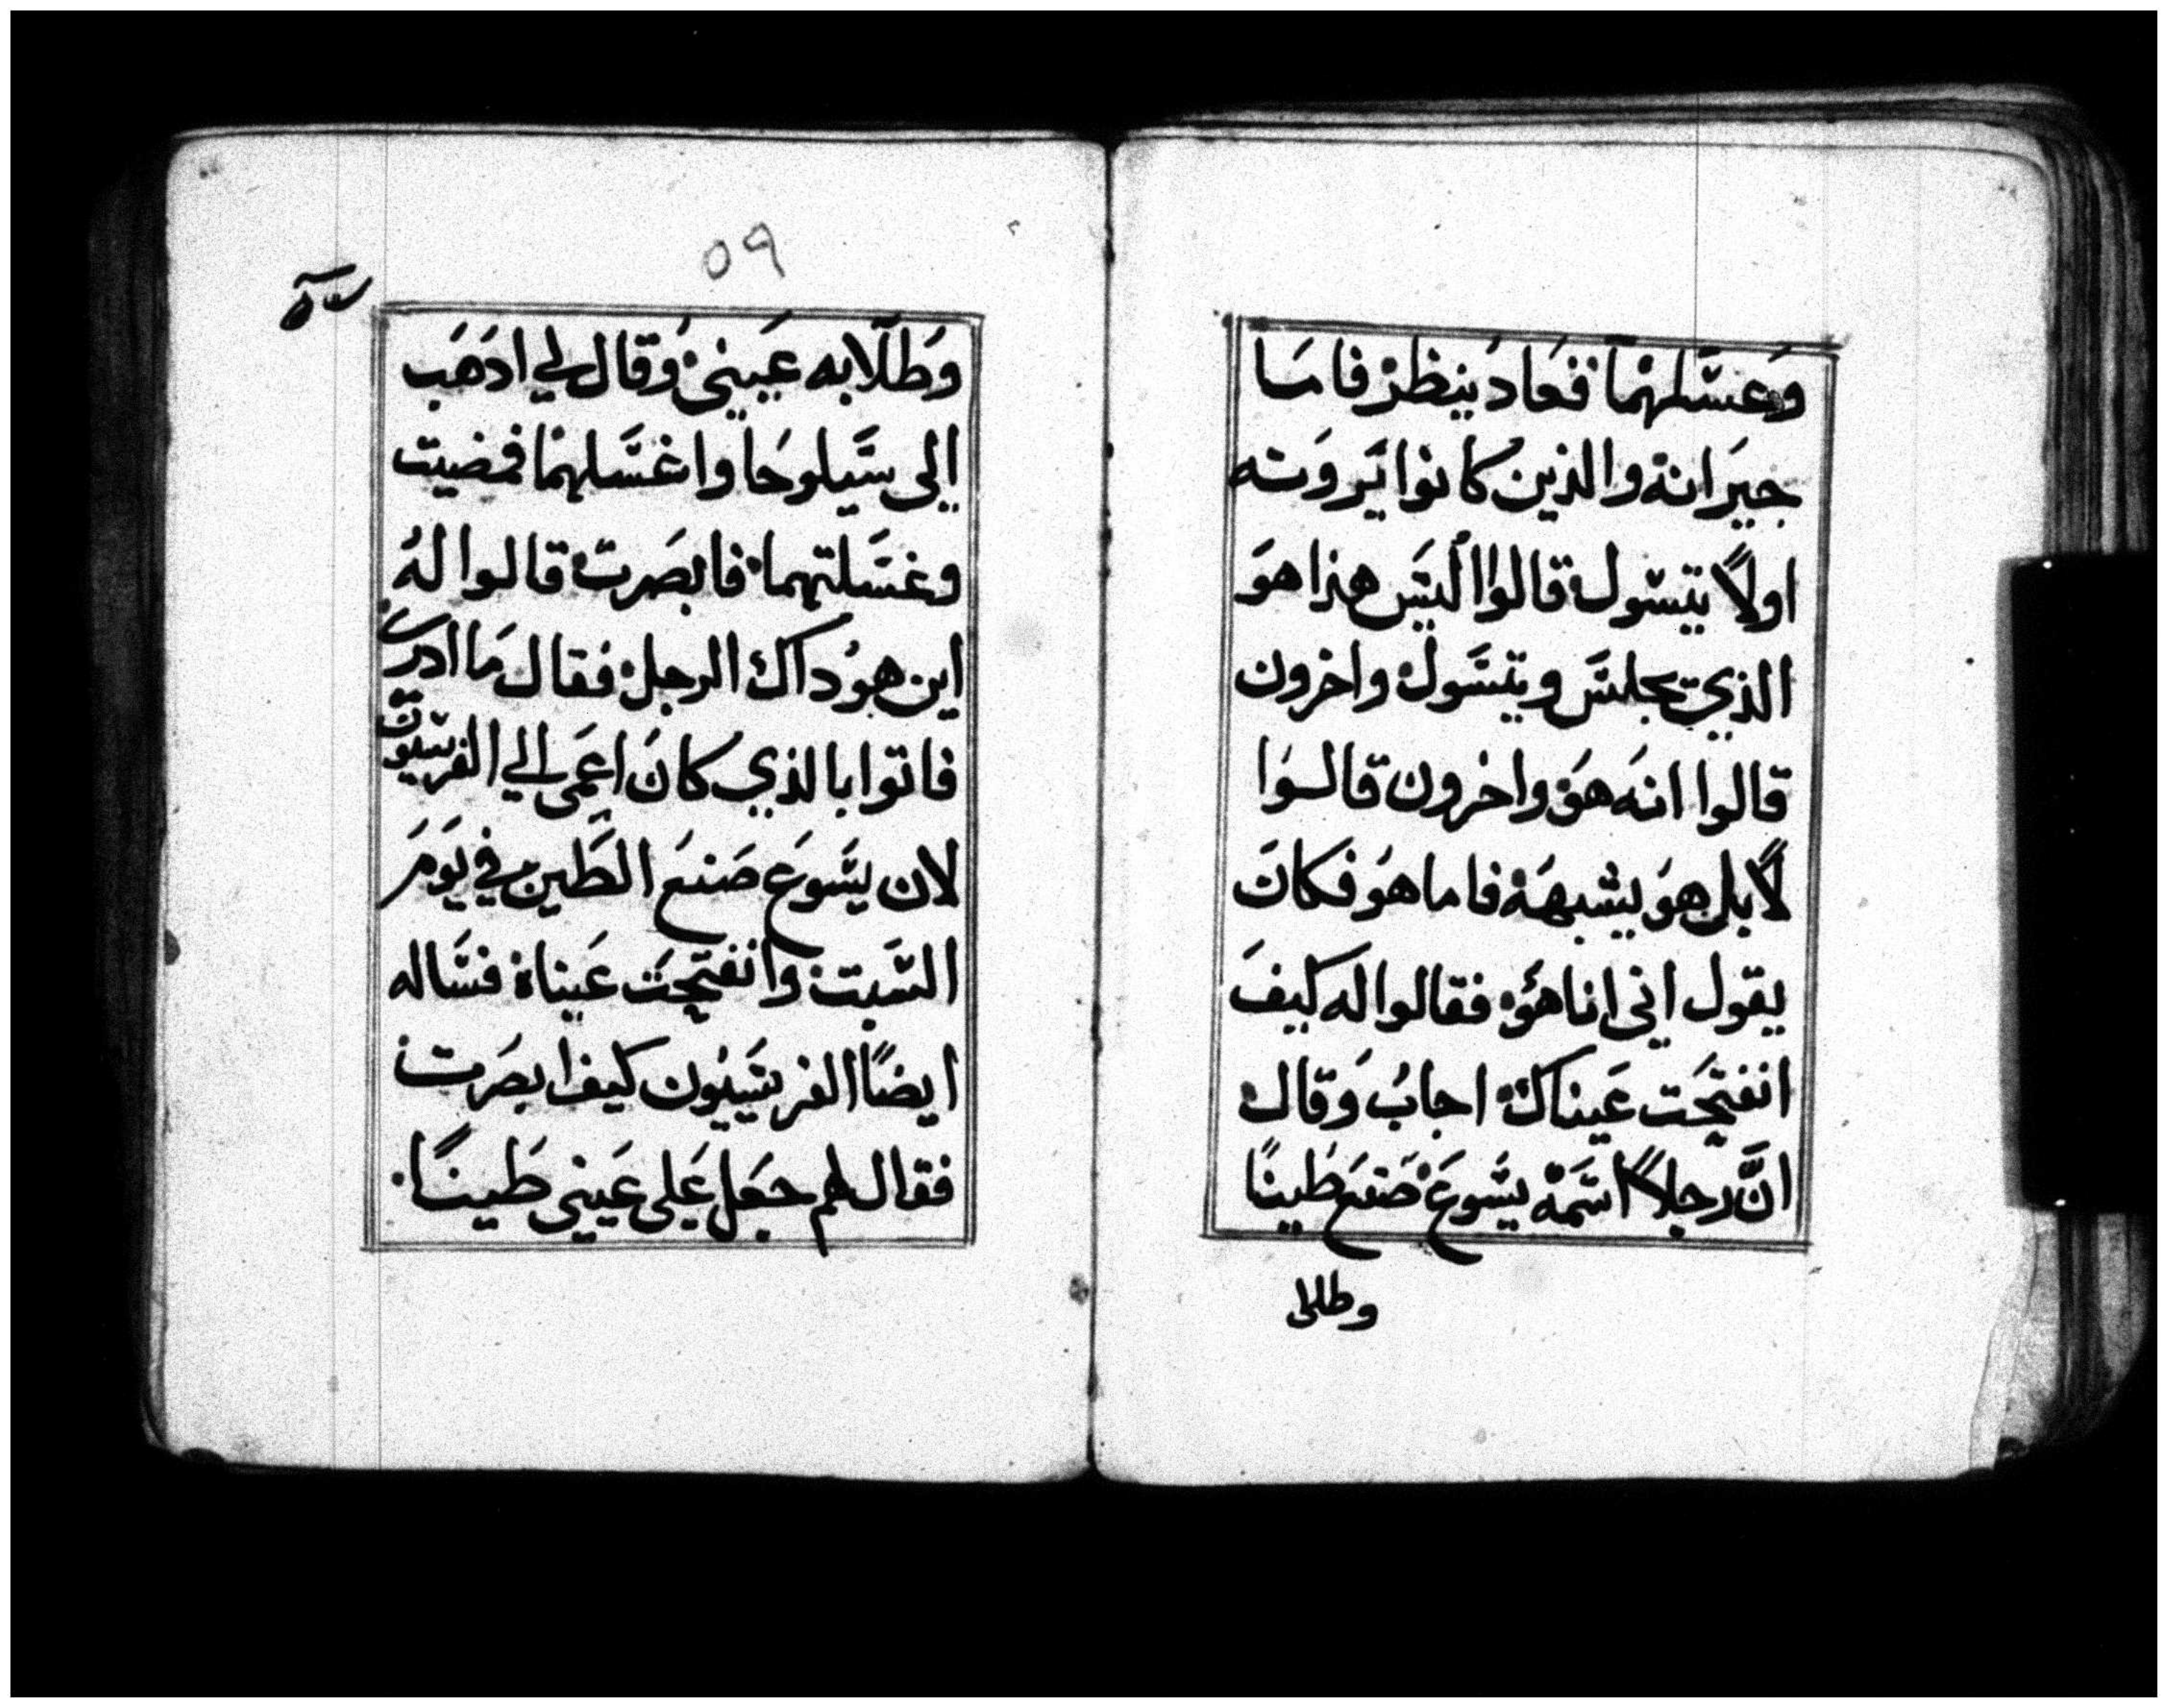 وَعسَّلهمَا فعَادَ ينظرْ فامَا
جيَرانهْ والذين كانوا يَروَنه
اولاً يتسول قالوا اليَس هذا هوَ
الذي يجلسَ ويتسَول واخرون
قالوا انهَ هوَ واخرون قالوا
لاً بل هوَ يشبههَ فاما هوَ فكانَ
يقول اني انا هوَ فقالوا له كيفَ
انفتحَت عَيناك اجابُ وَقال
انَّ رجلاً اسَمهْ يسَوعَ صَنعَ طينًا
وطلا
٥٩
وَطلَا به عَينيَ وَقال لي ادَهَب
إلى سَيلوحَا واغسَلهمَا فمضيت
وغسَلتهما فابصَرت قالوا لهُ
اين هوُ داك الرجل فقال مَا ادري
فاتوا بالذي كانَ اعَمى الي الفرسيون
لان يسَوعَ صَنعَ الطَين في يَومَ
السَبت وانفتحَت عَيناه فسَاله
ايضًا الفريسَيُون كيف ابصَرت
فقال لهم جعَل عَلى عَيني طَينًا